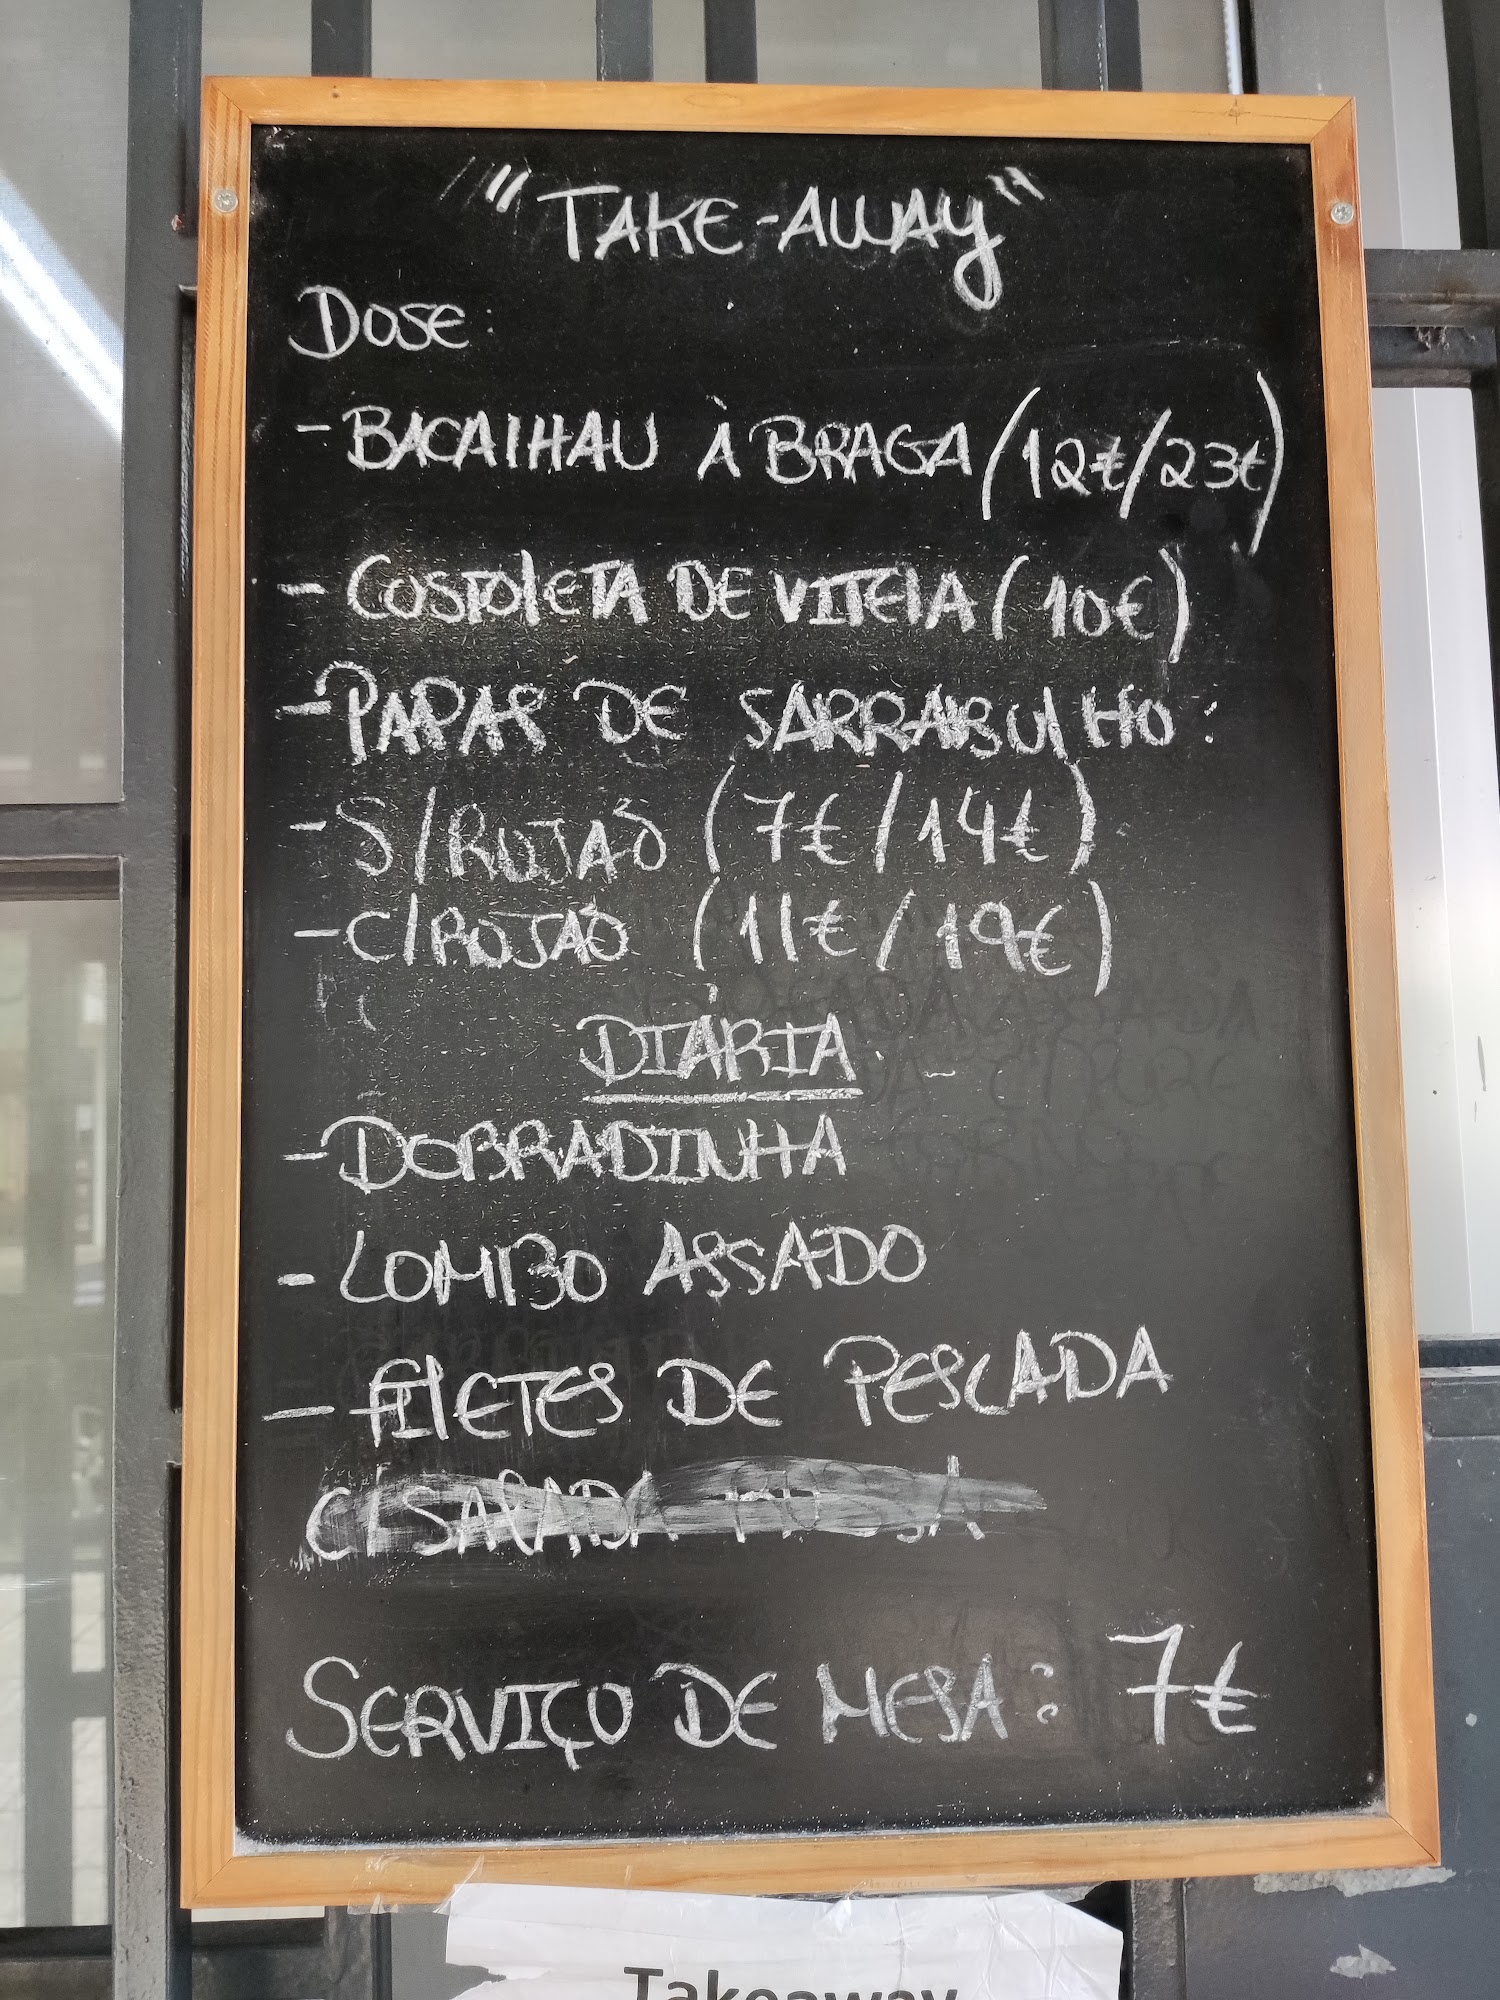 "TAKE-AWAY"
DOSE:
- BACALHAU À BRAGA (12€/23€)
- COSTOLETA DE VITELA (10€)
- PAPAS DE SARRABULHO:
- S/ROJÃO (7€/14€)
- C/ROJÃO (11€/19€)
DIÁRIA
- DOBRADINHA
- LOMBO ASSADO
- FILETES DE PESCADA
SERVIÇO DE MESA: 7€
Takeaway